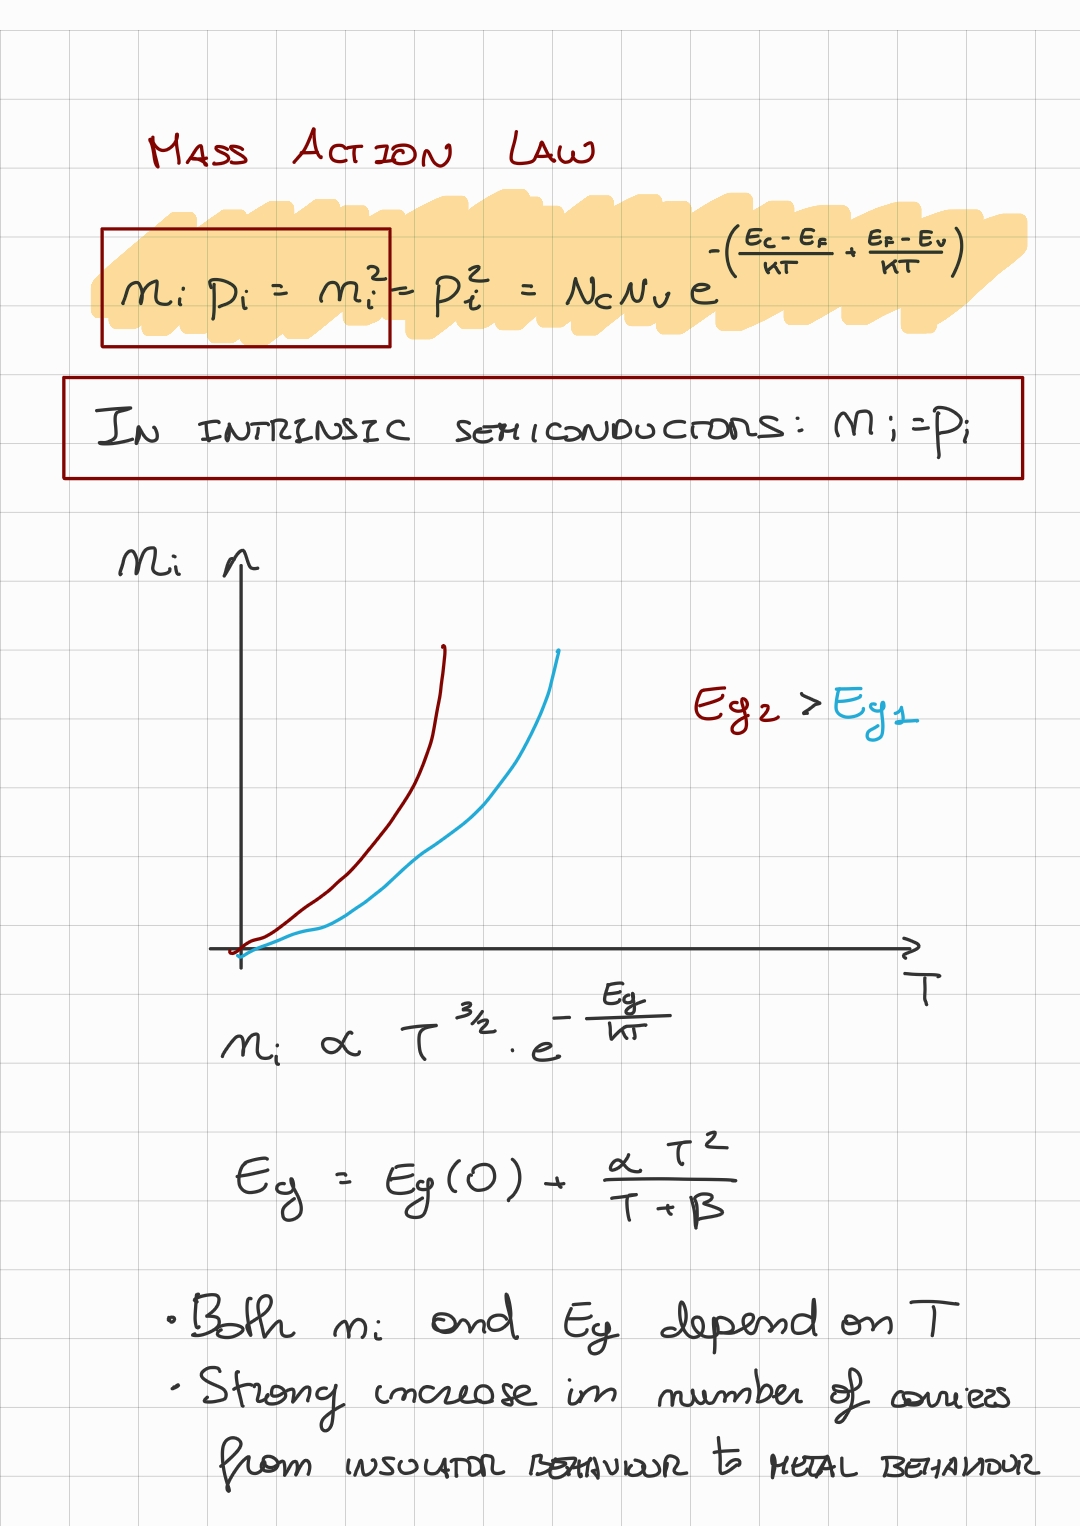 MASS ACTION LAW
n_i p_i = n_i² = p_i² = N_C N_V e^{-((E_C - E_F)/KT + (E_F - E_V)/KT)}
IN INTRINSIC SEMICONDUCTORS: n_i = p_i
n_i
E_g2 > E_g1
T
n_i ∝ T^{3/2} · e^{-E_g/KT}
E_g = E_g(0) + αT²/(T + β)
· Both n_i and E_g depend on T
· Strong increase in number of carriers
from INSULATOR BEHAVIOUR to METAL BEHAVIOUR